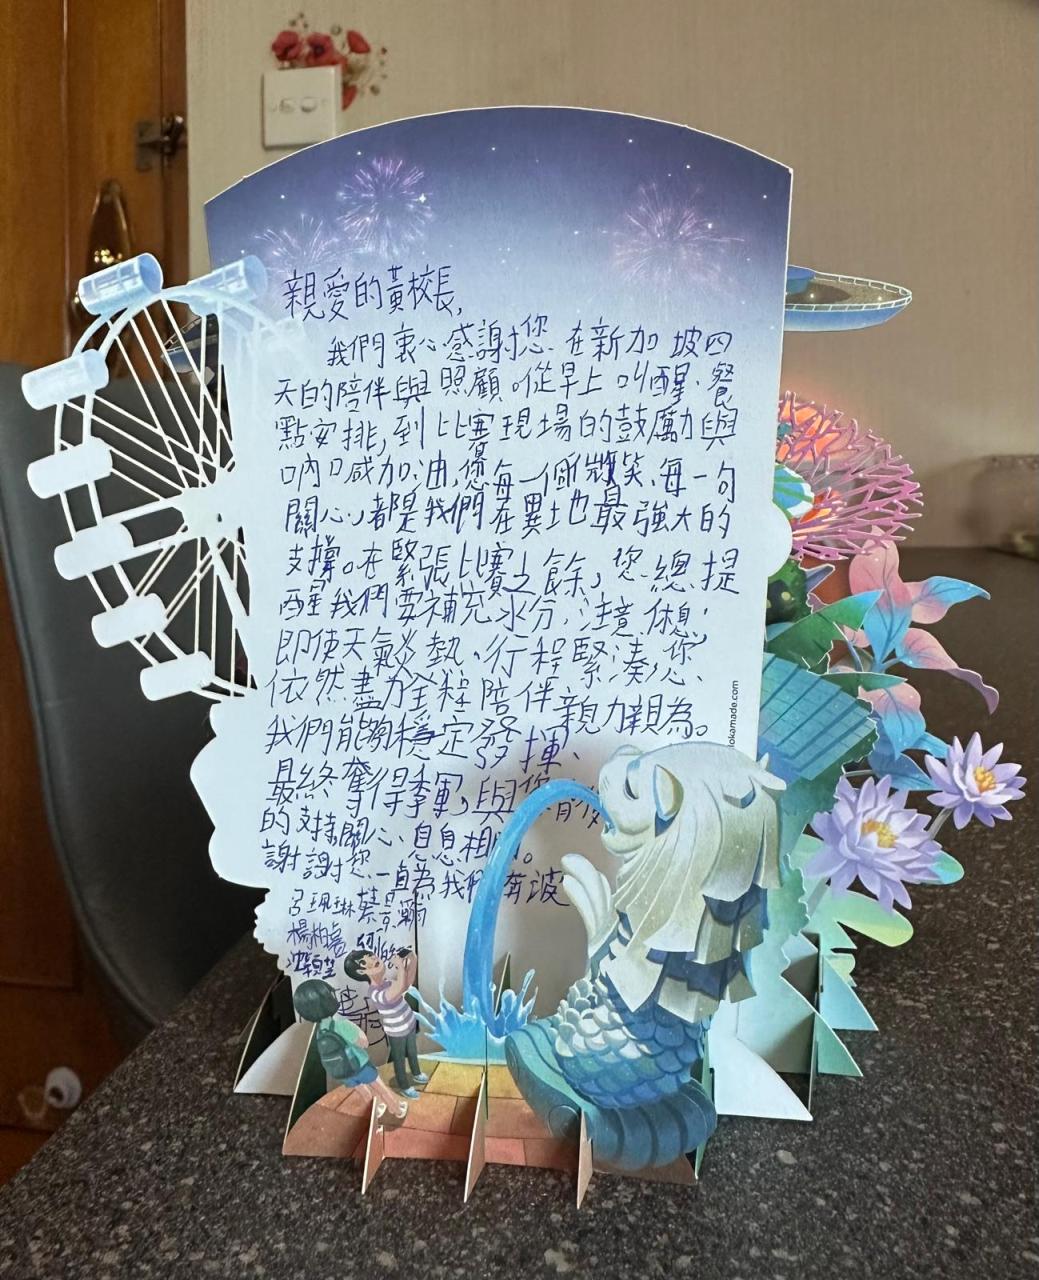 親愛的黃校長,
我們衷心感謝您在新加坡四
天的陪伴與照顧。從早上叫醒、餐
點安排,到比賽現場的鼓勵與
吶喊加油,您每一個微笑、每一句
關心,都是我們在異地最強大的
支撐。在緊張比賽之餘,您總提
醒我們要補充水分,注意休息;
即使天氣炎熱、行程緊湊,您
依然盡力全程陪伴親力親為。
我們能夠穩定發揮、
最終奪得季軍,與您
的支持關心息息相
謝謝您一直為我們奔波
呂珮琳
楊柏